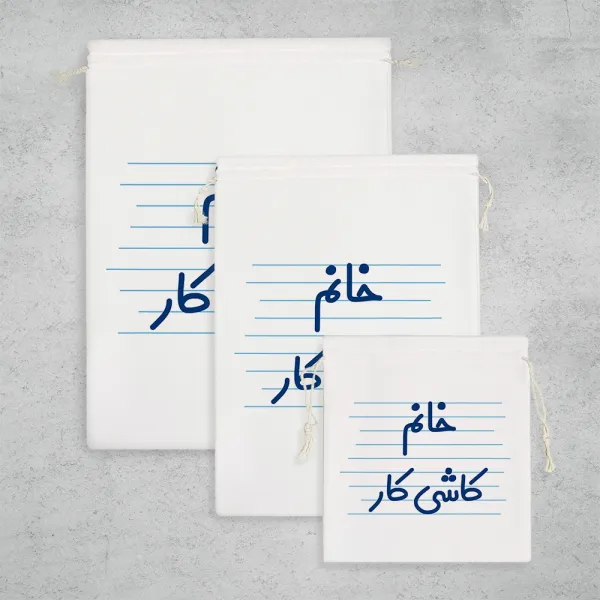 م
کار
خانم
کار
خانم
کاشی کار